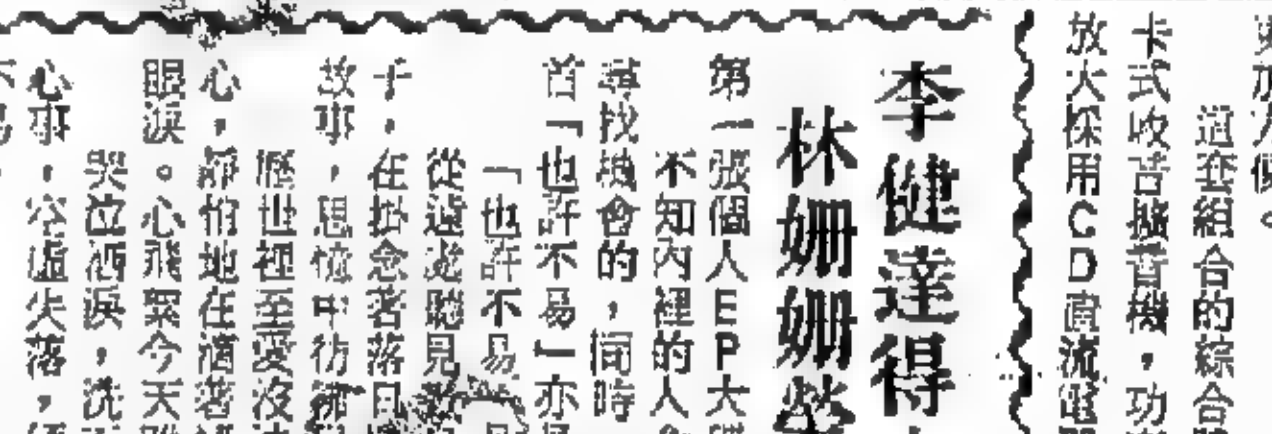 這套組合的綜合
卡式收音擴音機，功
放大採用CD直流電
李健達得
林姍姍
第一張個人EP大
不知內裡的人
尋找機會的，同時
首「也許不易」亦
「也許不易
從遠處聽見
子，在掛念著落日
故事，思憶中彷彿
歷世裡至愛沒
心，靜悄地在滴著
眼淚。心飛絮今天
哭泣洒淚，洗
心事，空虛失落，